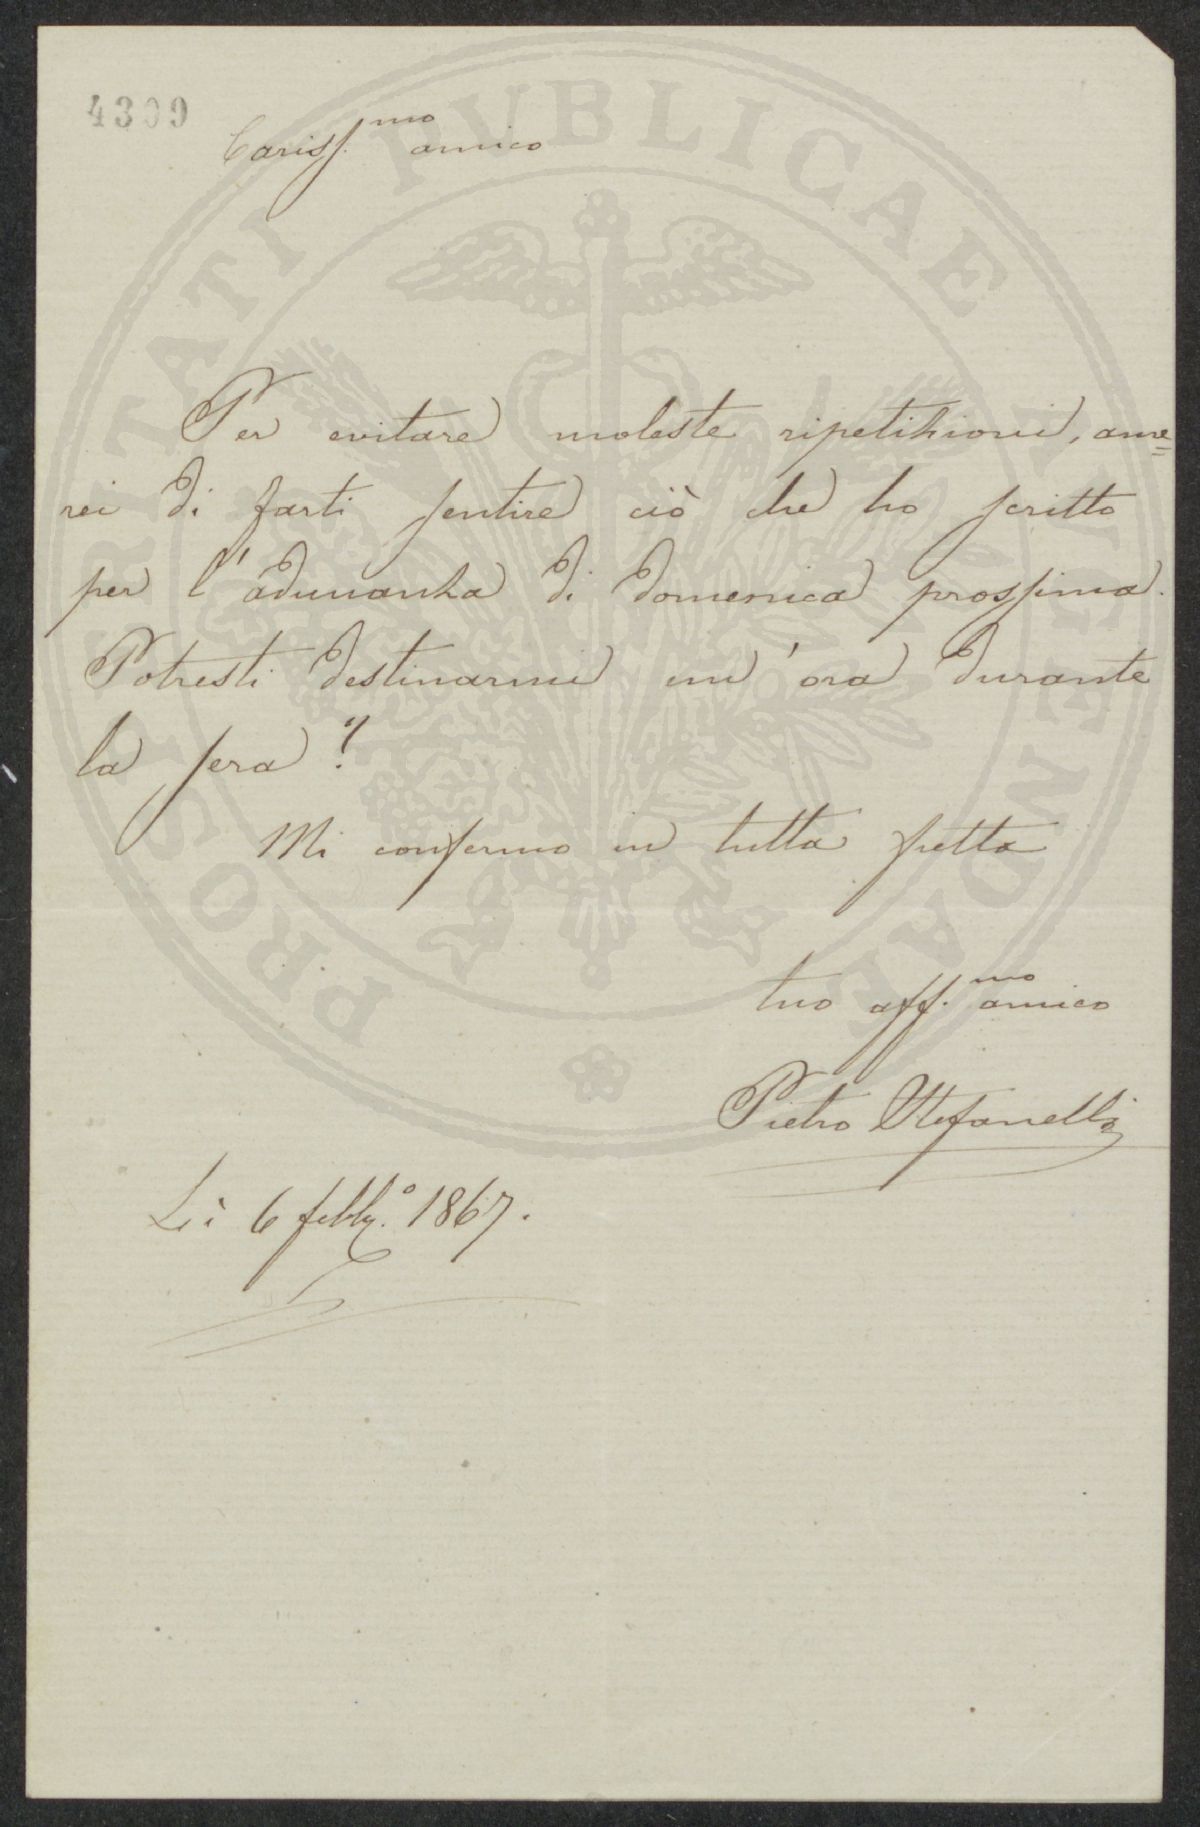 4309
Cariss.mo amico
Per evitare moleste ripetizioni, ame=
rei di farti sentire ciò che ho scritto
per l'adunanza di domenica prossima.
Potresti destinarmi un'ora durante
la sera?
Mi confermo in tutta fretta
tuo aff.mo amico
Pietro Stefanelli
Lì 6 febb.o 1867.
PROSPERITATI PUBLICAE AUGENDAE